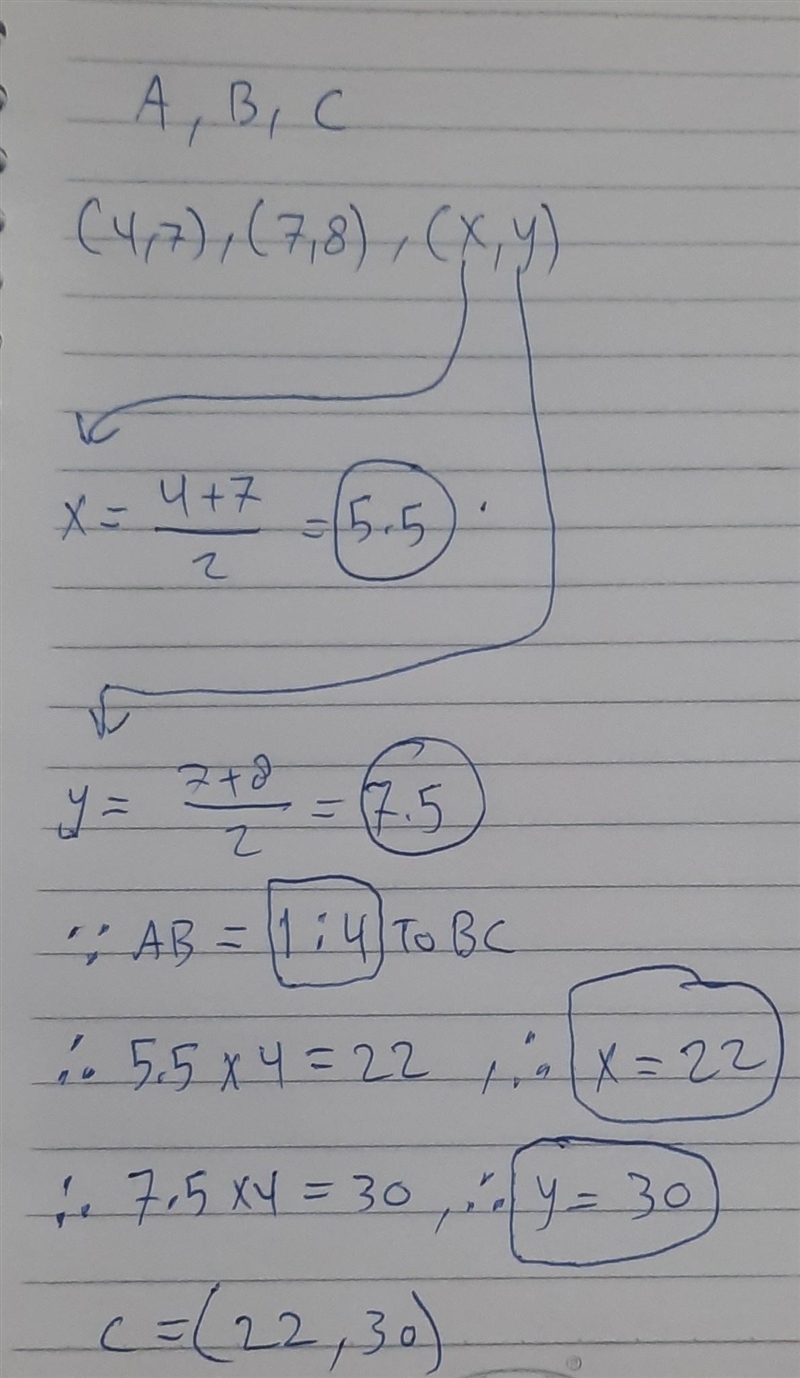 A, B, C
(4,7), (7,8), (x,y)
x = 4+7/2 = 5.5
y = 7+8/2 = 7.5
∵ AB = 1:4 To BC
∴ 5.5 x 4 = 22 , ∴ x = 22
∴ 7.5 x 4 = 30 , ∴ y = 30
C = (22, 30)